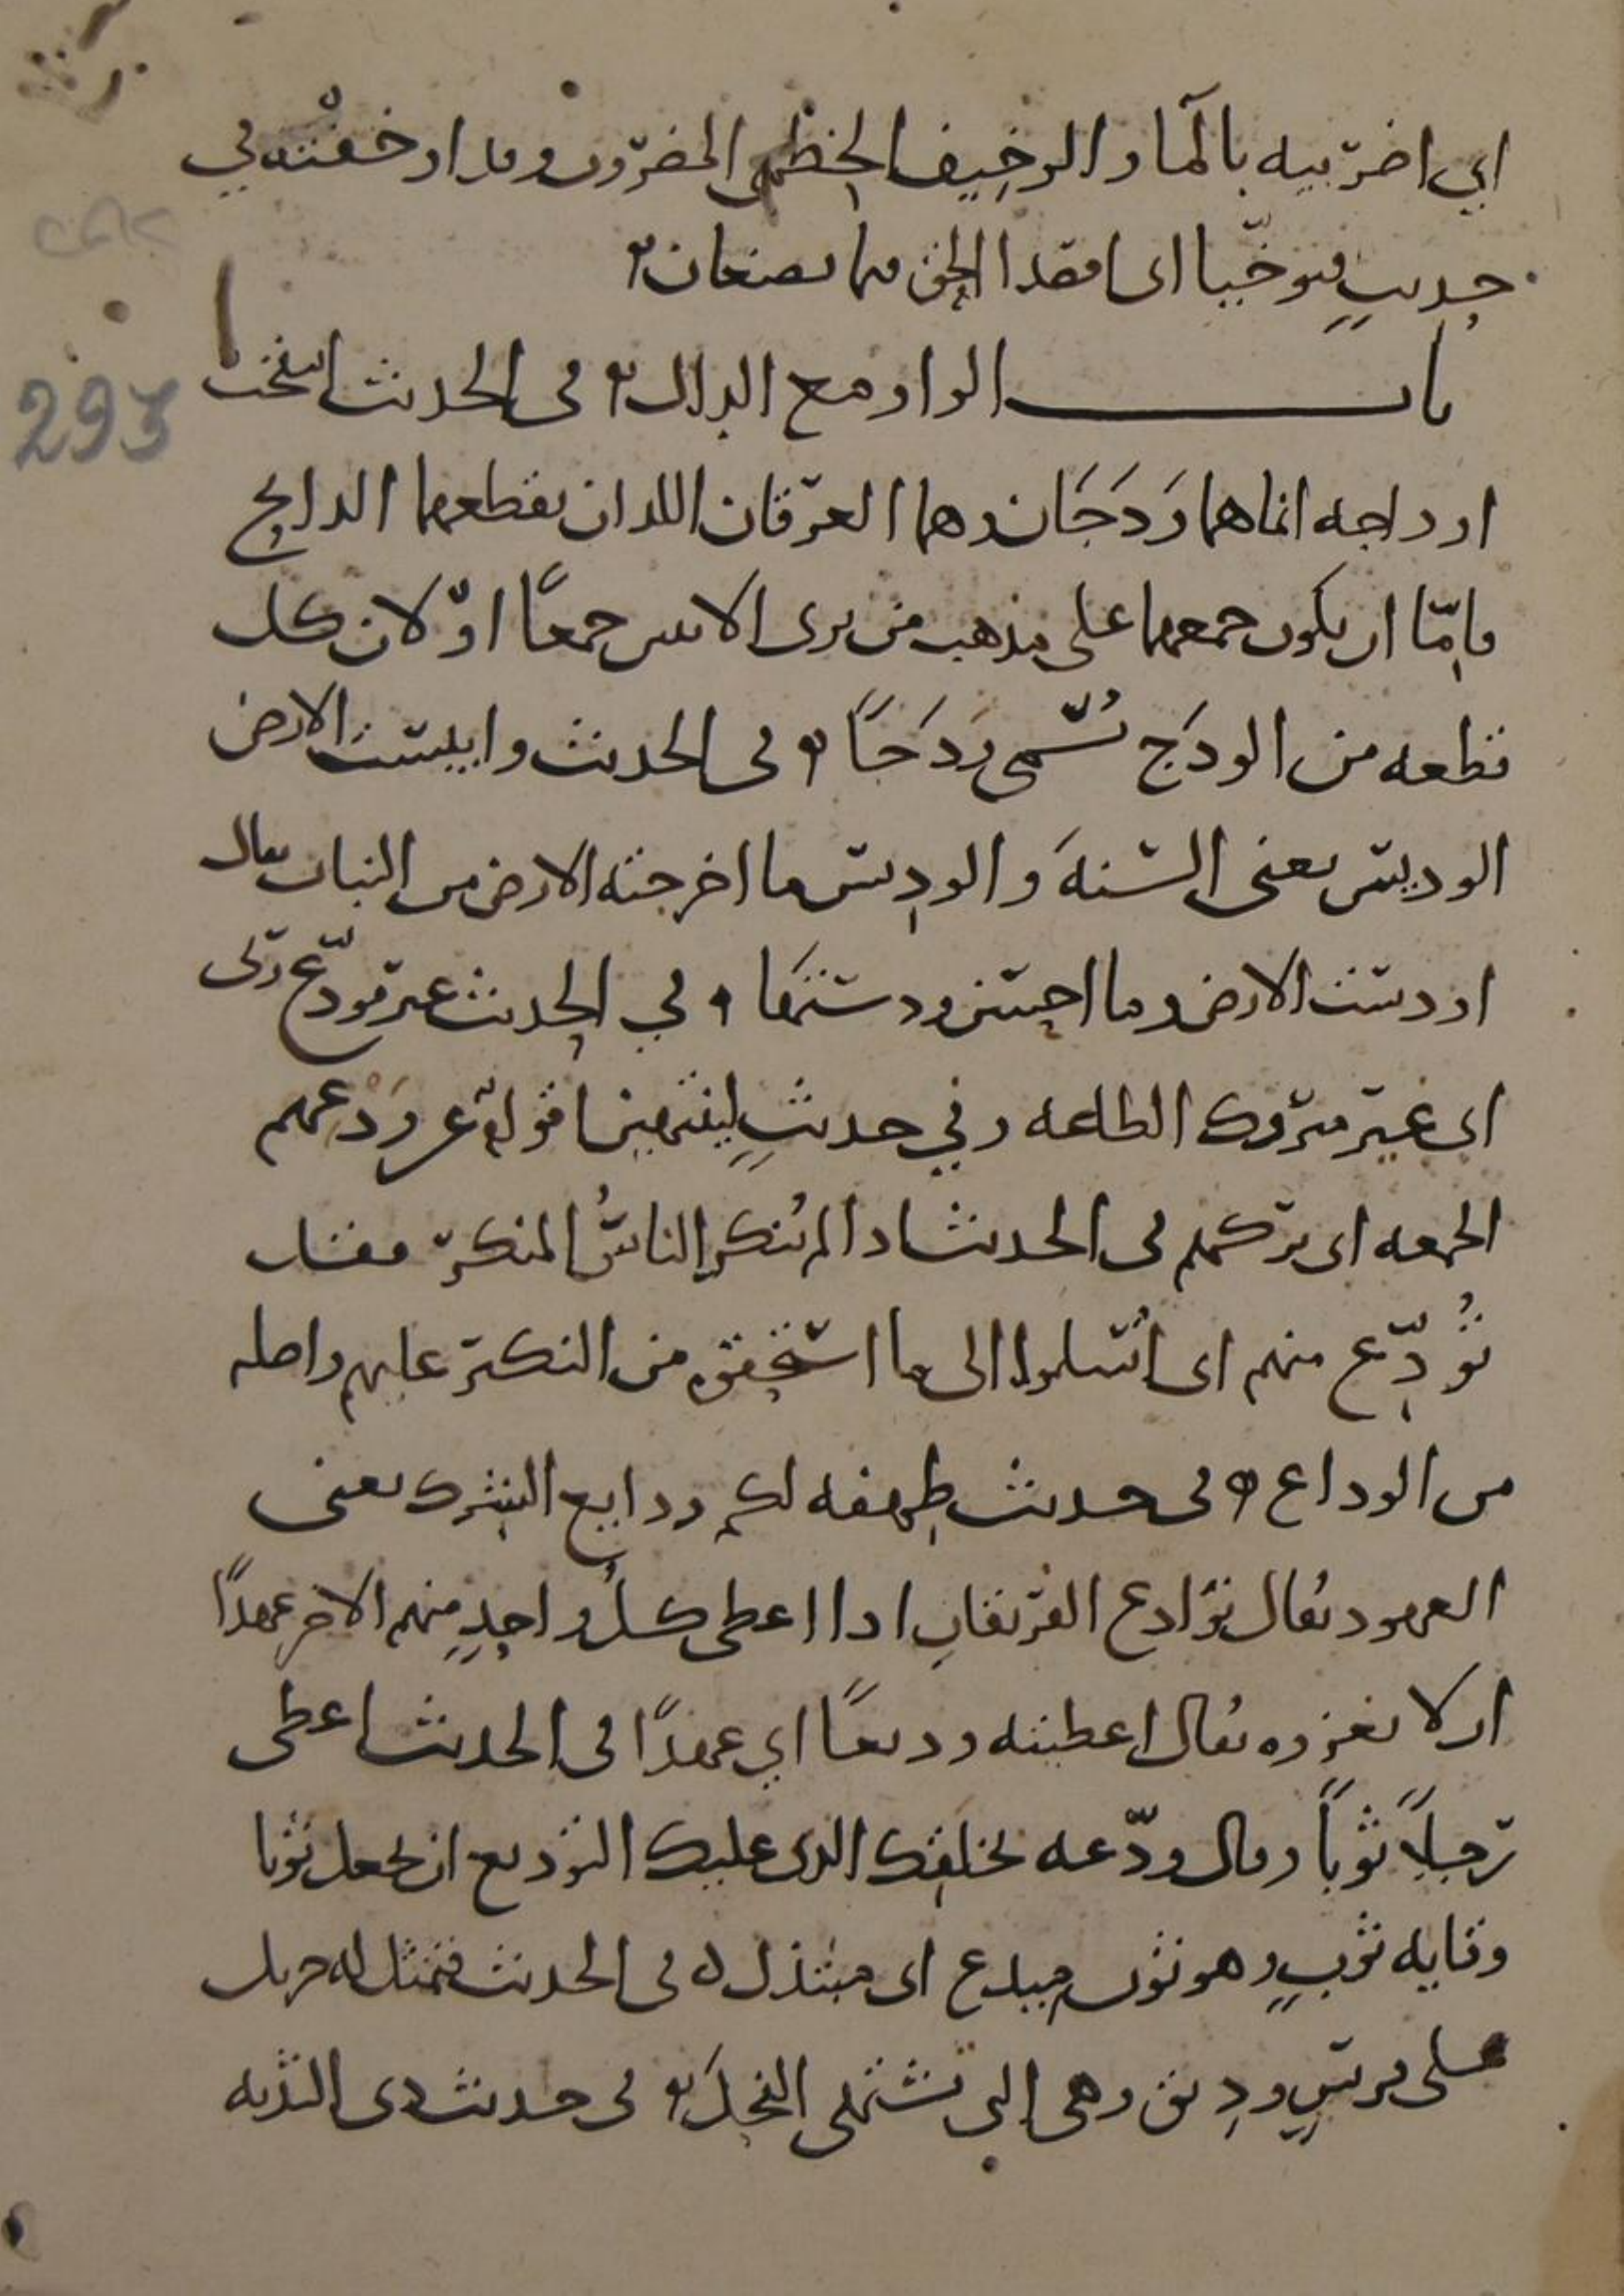 اي اضربيه بالما والوخيف الخطمي المضروب وقد اوخفته في
حديث فتوخيا اى اقصدا الحق فيما تصنعان
باب الواو مع الدال في الحديث انتفخت
293
اوداجه انما هما وَدَجَان وهما العرقان اللذان يقطعهما الذابح
فامّا ان يكون جمعهما على مذهب من يرى الاثنين جمعًا اوّ لان كل
قطعه من الودَج تُسمّى وَدَجًا في الحديث وايبست الارض
الوديس يعنى السنهَ والوديس ما اخرجته الارض من النبات يقال
اودست الارض وما احسن ودسَها في الحديث غير مودّع ربّى
اى غير متروك الطاعه وفي حديثٍ لينتهين اقوام عن وَدْعهم
الجمعه اى تركهم في الحديث اذا لم يُنكر الناسُ المنكر فقد
تُوُدّع منهم اى اُسلموا الى ما استحقوه من النكير عليهم واصله
من الوداع في حديث طهفه لكم ودايع الشرك يعنى
العهود يُقال توادع الفريقانِ اذا اعطى كلُ واحدٍ منهم الاخر عهدًا
ان لا يغزوه يُقال اعطيته وديعًا اي عهدًا في الحديث اعطى
رجلًا ثوبًا وقال ودّعه بخلقك الذى عليك التوديع ان يجعل ثوبا
وقايه ثوبٍ وهو ثوب ميدع اى مبتذل في الحديث فتمثل له جبريل
على فرسٍ ودِيق وهى التى تشتهى الفحلَ في حديث ذى الثديه